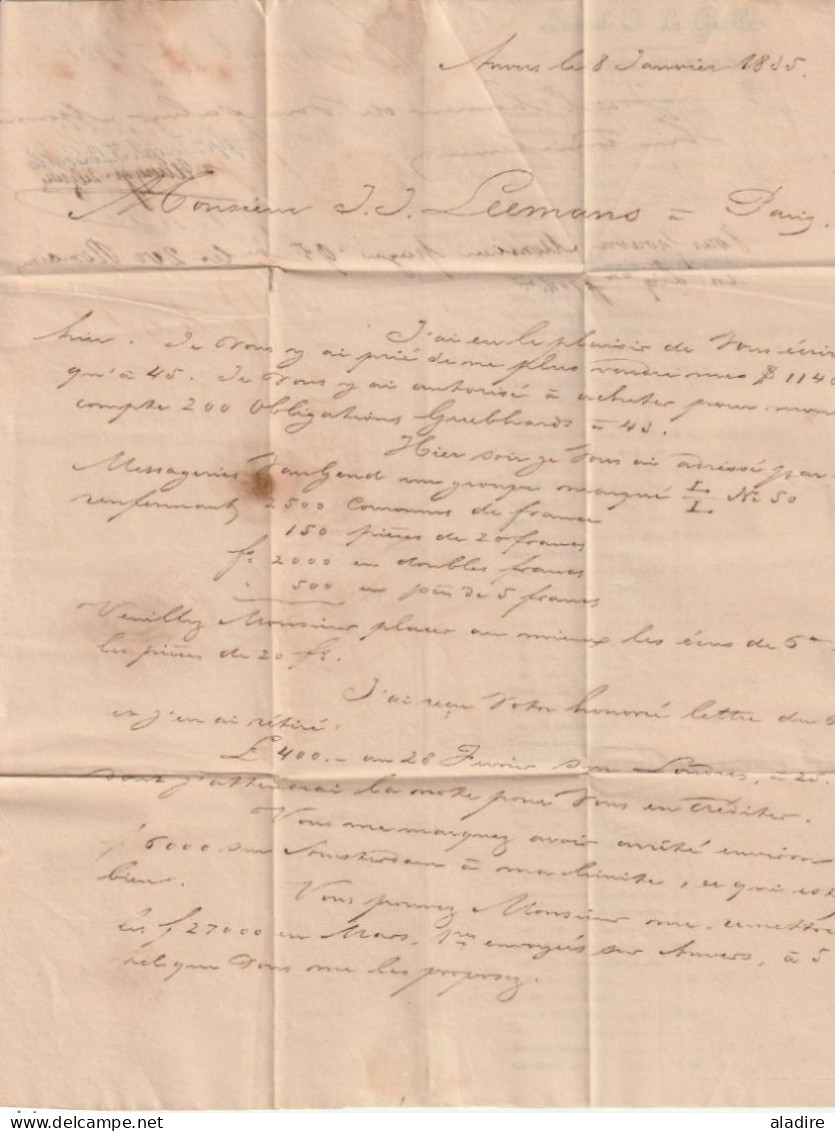 Anvers le 8 Janvier 1835.
Monsieur J. J. Leemans à Paris
J'ai eu le plaisir de Vous écrir
hier. Je Vous y ai prié de ne plus vendre mes $ 1140
qu'à 45. Je Vous y ai autorisé à acheter pour mon
compte 200 Obligations Guebhards à 43.
Hier soir je Vous ai adressé par
Messageries VanGend un groupe marqué L/L No 50
renfermant 2500 Couronnes de france
150 pièces de 20 francs
fs 2000 en doubles francs
" 500 en pces de 5 francs
Veuillez Monsieur placer au mieux les écus de 6
les pièces de 20 fs.
J'ai reçu Votre honoré lettre du 6
et j'en ai rétiré:
£ 400.- au 28 Fevrier sur Londres, à 25.
dont j'attendrai la note pour Vous en créditer.
Vous me marquez avoir arrêté environ
f 6000 sur Amsterdam à ma limite, ce qui est
bien.
Vous pouvez Monsieur me remettre
les f 27000 en Mars, envoyés sur Anvers, à 5
tel que Vous me les proposez.
aladire - delcampe.net